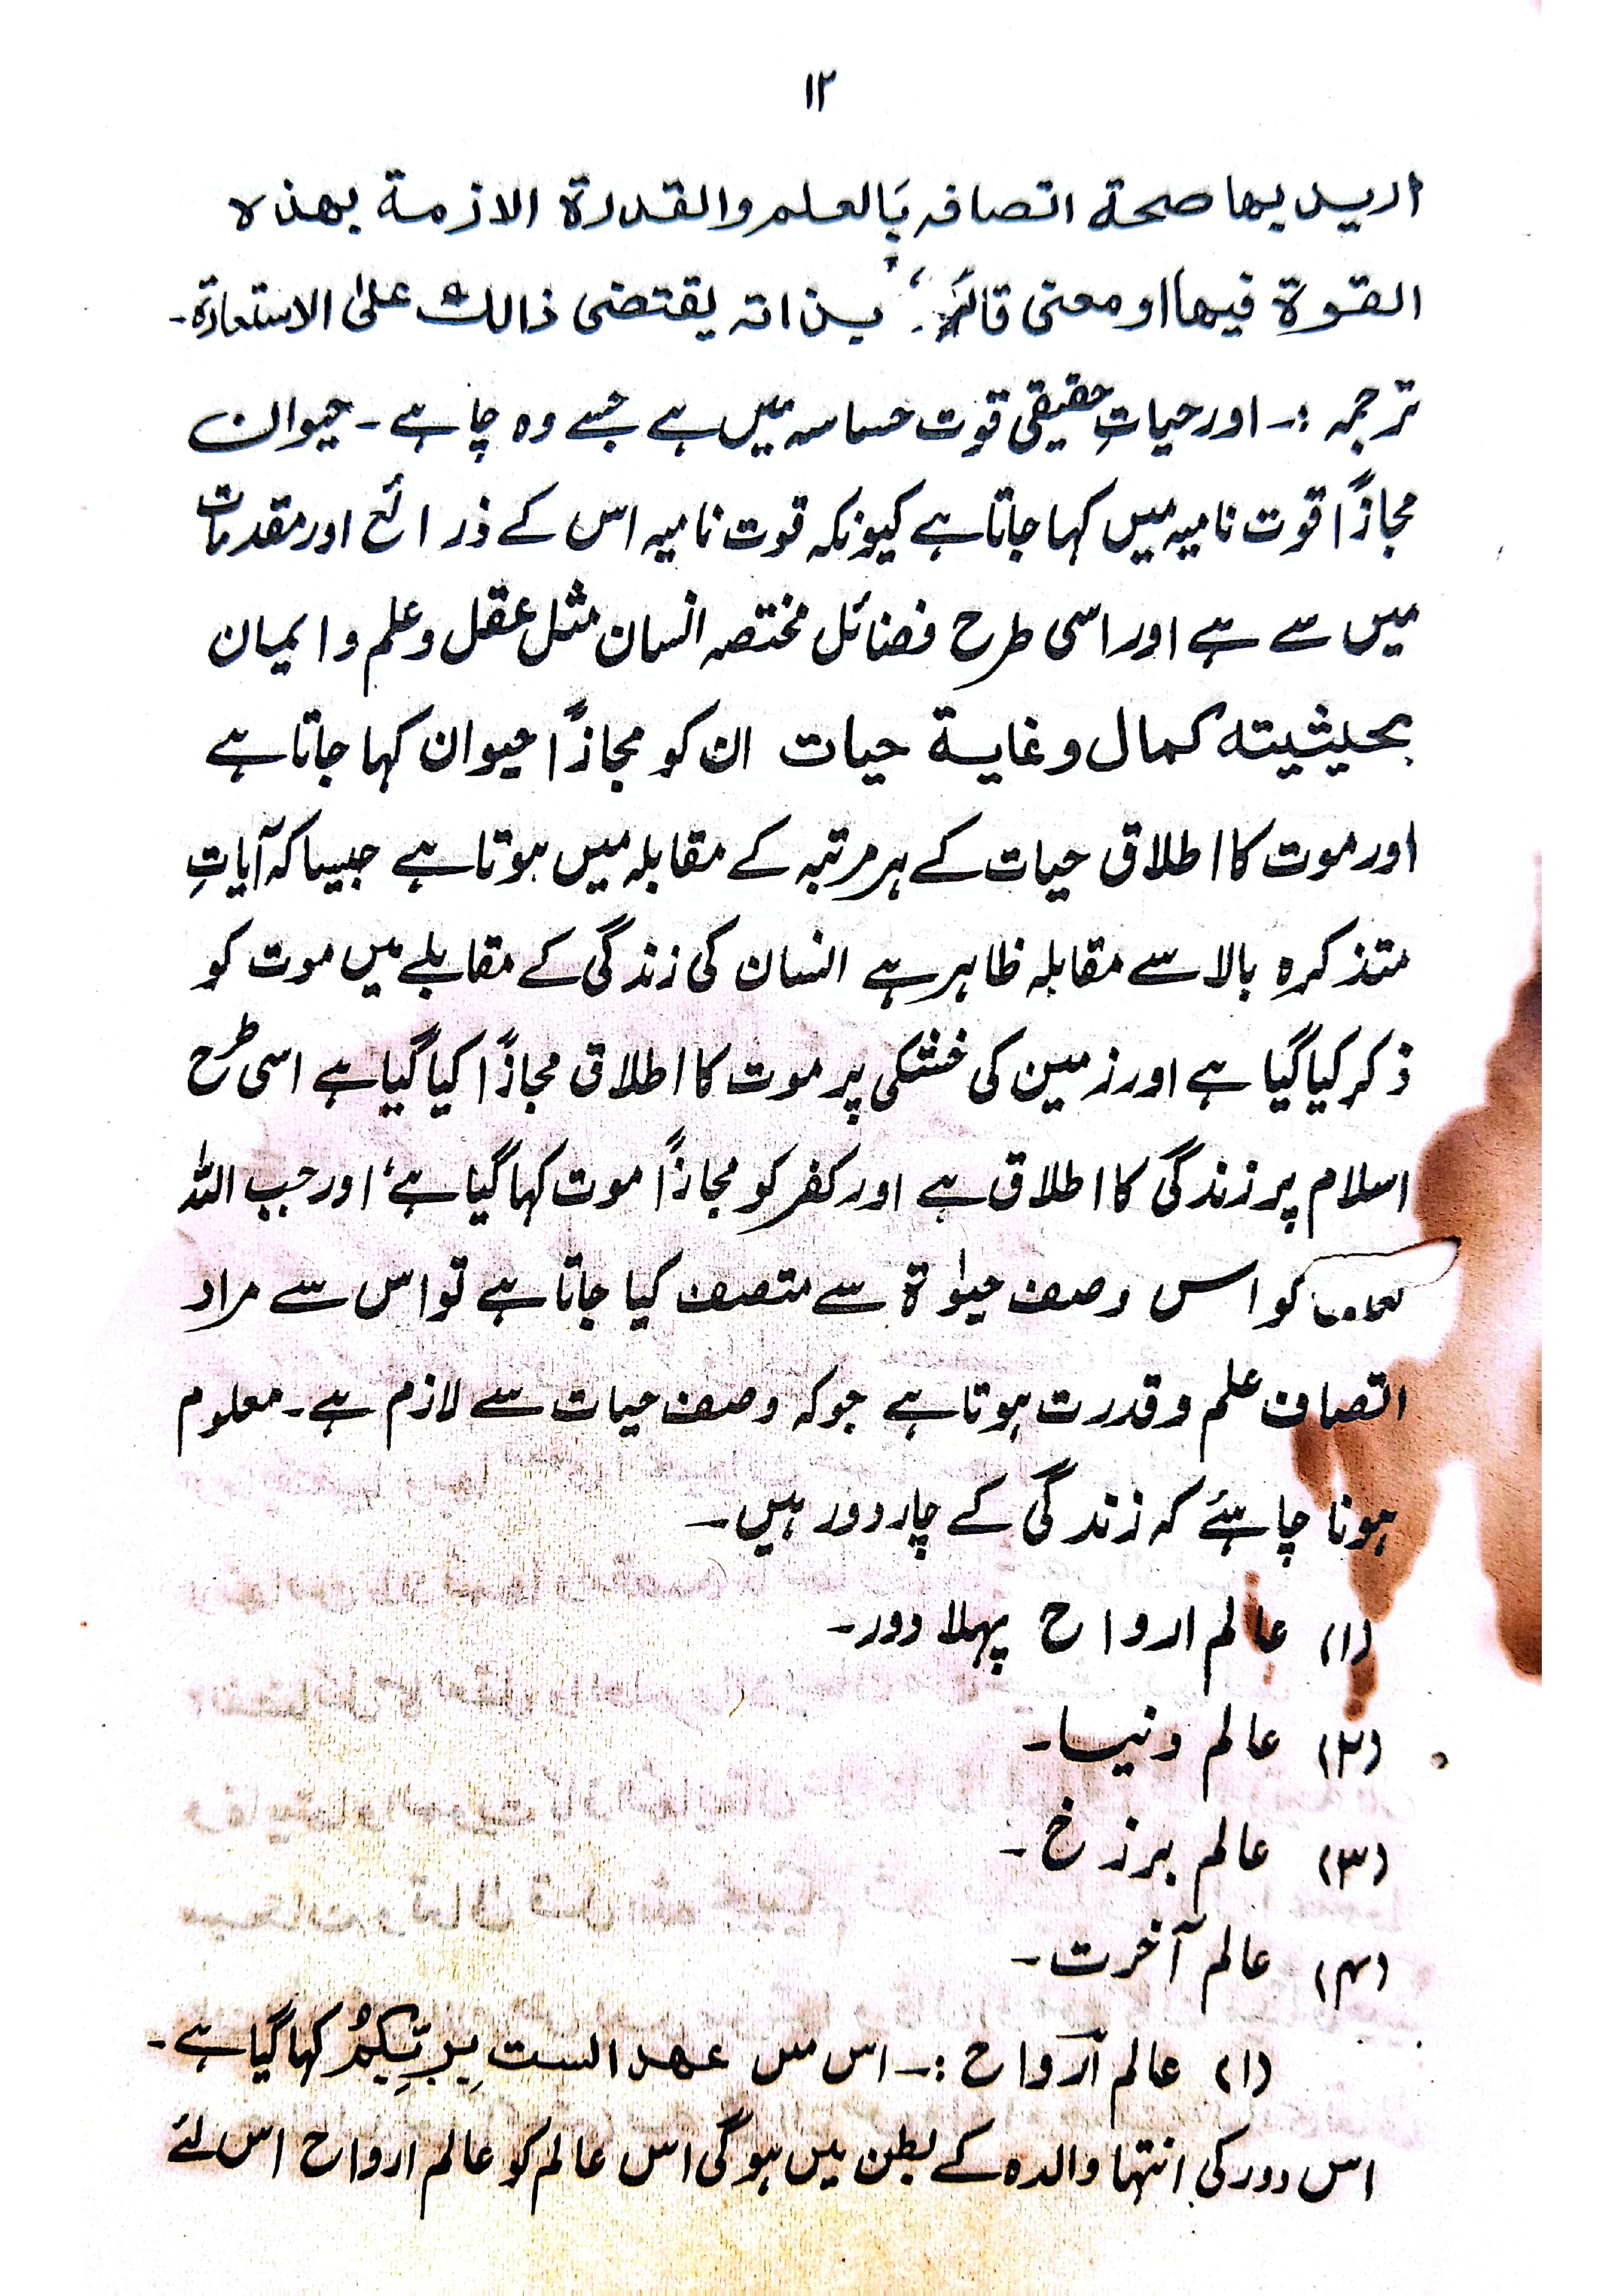 ۱۲
ارید بہا صحة اتصافہ بَالعلم والقدرة الازمة بھذہ
القوة فیھا او معنی قائم بذاتہ یقتضی ذالك علیٰ الاستعارة۔
ترجمہ :۔ اور حیاتِ حقیقی قوت حساسہ میں ہے جسے وہ چاہے ۔ حیوان
مجازًا قوت نامیہ میں کہا جاتا ہے کیونکہ قوت نامیہ اس کے ذرائع اور مقدمات
میں سے ہے اور اسی طرح فضائل مختصہ انسان مثل عقل و علم و ایمان
بحیثیتہ کمال و غایة حیات ان کو مجازًا حیوان کہا جاتا ہے
اور موت کا اطلاق حیات کے ہر مرتبہ کے مقابلہ میں ہوتا ہے جیسا کہ آیاتِ
متذکرہ بالا سے مقابلہ ظاہر ہے انسان کی زندگی کے مقابلے میں موت کو
ذکر کیا گیا ہے اور زمین کی خشکی پر موت کا اطلاق مجازًا کیا گیا ہے اسی طرح
اسلام پر زندگی کا اطلاق ہے اور کفر کو مجازًا موت کہا گیا ہے، اور جب اللہ
کو اس وصف حیوٰة سے متصف کیا جاتا ہے تو اس سے مراد
اتصاف علم و قدرت ہوتا ہے جو کہ وصف حیات سے لازم ہے۔ معلوم
ہونا چاہئے کہ زندگی کے چار دور ہیں۔
(۱) عالم ارواح پہلا دور۔
(۲) عالم دنیا۔
(۳) عالم برزخ۔
(۴) عالم آخرت۔
(۱) عالم ارواح :۔ اس میں عھد الستِ بربِّکمُْ کہا گیا ہے۔
اس دور کی انتہا والدہ کے بطن میں ہوگی اس عالم کو عالم ارواح اس لئے